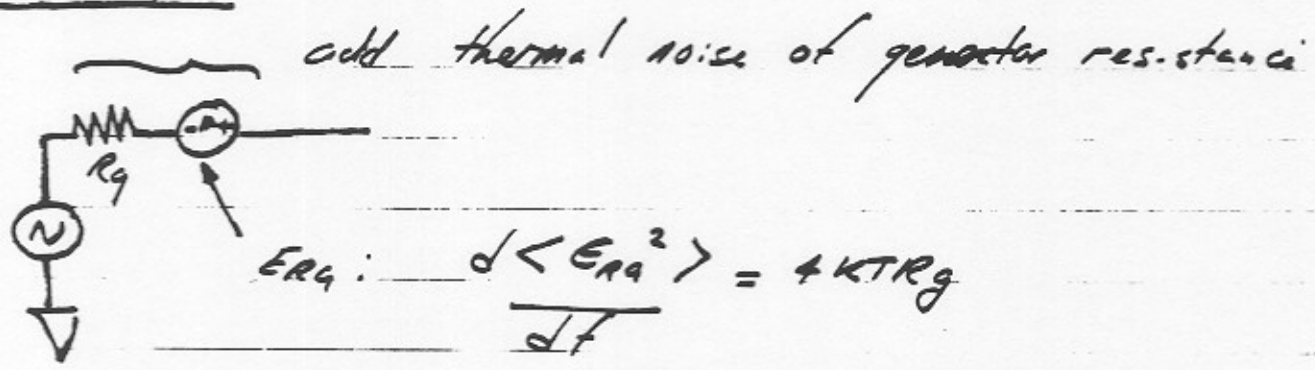 add thermal noise of generator resistance
Rg
E_{Rg}: d<E_{Rg}^2> = 4KTRg
df